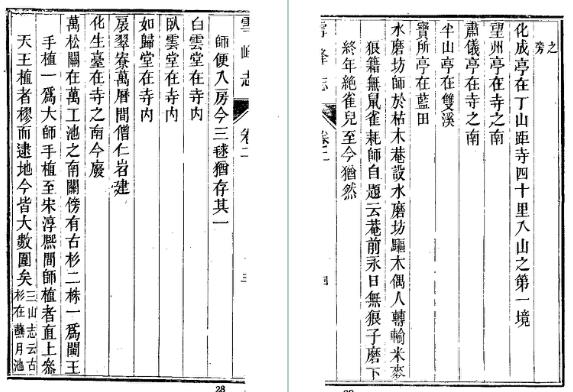 雪峰志 卷二 三
師便入房今三毬猶存其一
白雲堂在寺內
臥雲堂在寺內
如歸堂在寺內
展翠寮萬曆間僧仁岩建
化生臺在寺之南今廢
萬松關在萬工池之南關傍有古杉二株一爲閩王
手植一爲大師手植至宋淳熈間師植者直上叅
天王植者樛而逮地今皆大數圍矣三山志云古杉在蘸月池
28
之旁
化成亭在丁山距寺四十里入山之第一境
望州亭在寺之南
肅儀亭在寺之南
半山亭在雙溪
寶所亭在藍田
水磨坊師於枯木菴設水磨坊驅木偶人轉輸米麥
狼籍無鼠雀耗師自題云菴前永日無狼子磨下
終年絕雀兒至今猶然
雪峰志 卷二 四